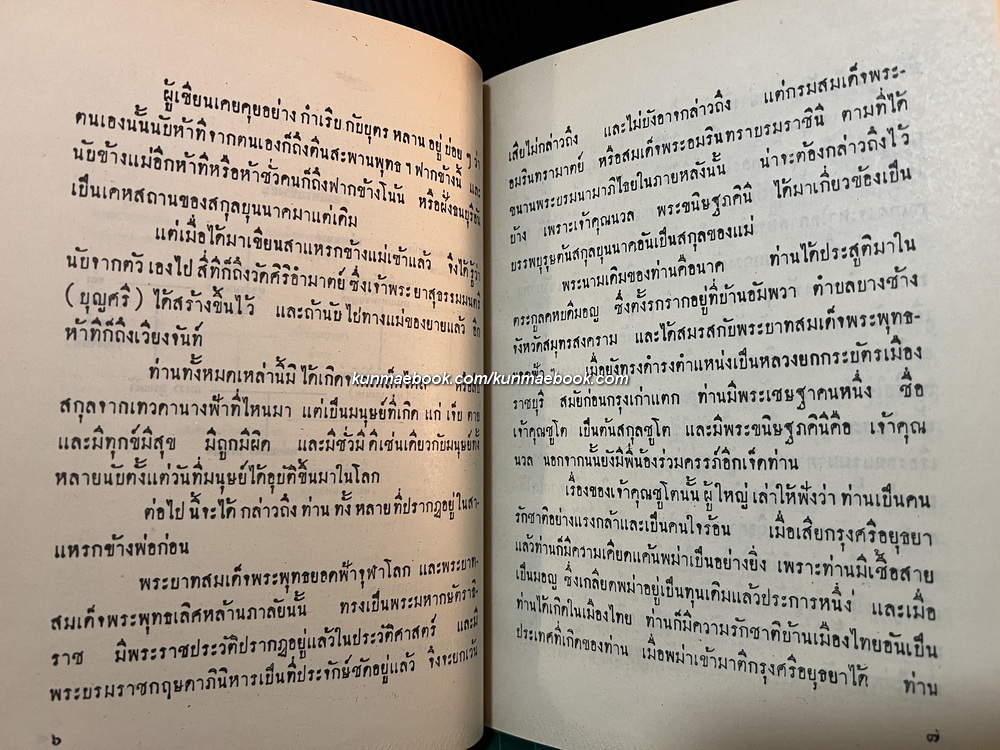 ผู้เขียนเคยคุยอย่าง กำเริบ กับบุตร หลาน อยู่ บ่อย ๆ ว่า
ตนเองนั้นนับห้าทีจากตนเองก็ถึงตีนสะพานพุทธ ฯ ฟากข้างนี้ และ
นับข้างแม่อีกห้าทีหรือห้าชั่วคนก็ถึงฟากข้างโน้น หรือฝั่งธนบุรีอัน
เป็นเคหสถานของสกุลบุนนาคมาแต่เดิม
แต่เมื่อได้มาเขียนสาแหรกข้างแม่เข้าแล้ว จึงได้รู้ว่า
นับจากตัว เองไป สี่ทีก็ถึงวัดศิริอำมาตย์ ซึ่งเจ้าพระ ยาสุธรรมมนตรี
(บุญศรี) ได้สร้างขึ้นไว้ และถ้านับ ไปทางแม่ของยายแล้ว อีก
ห้าทีก็ถึงเวียงจันท์
ท่านทั้งหมดเหล่านี้มิ ได้เกิด หรือสืบ
สกุลจากเทวดานางฟ้าที่ไหนมา แต่เป็นมนุษย์ที่เกิด แก่ เจ็บ ตาย
และมีทุกข์มีสุข มีถูกมีผิด และมีชั่วมี ดีเช่นเดียวกับมนุษย์ทั้ง
หลายนับตั้งแต่วันที่มนุษย์ได้อุบัติขึ้นมาในโลก
ต่อไป นี้จะได้ กล่าวถึง ท่าน ทั้ง หลาย ที่ปรากฏอยู่ ในสา-
แหรกข้างพ่อก่อน
พระบาทสมเด็จพระพุทธยอดฟ้าจุฬาโลก และพระบาท-
สมเด็จพระพุทธเลิศหล้านภาลัยนั้น ทรงเป็นพระมหากษัตราธิ-
ราช มีพระราชประวัติปรากฏอยู่แล้วในประวัติศาสตร์ และมี
พระบรมราชกฤษดาภินิหารเป็นที่ประจักษ์ชัดอยู่แล้ว จึงจะยกเว้น
๖
เสียไม่กล่าวถึง และไม่บังอาจกล่าวถึง แต่กรมสมเด็จพระ-
อมรินทรามาตย์ หรือสมเด็จพระอมรินทราบรมราชินี ตามที่ได้
ขนานพระบรมนามาภิไธยในภายหลังนั้น น่าจะต้องกล่าวถึงไว้
บ้าง เพราะเจ้าคุณนวล พระขนิษฐภคินี ได้มาเกี่ยวข้องเป็น
บรรพบุรุษต้นสกุลบุนนาคอันเป็นสกุลของแม่
พระนามเดิมของท่านคือนาค ท่านได้ประสูติมาใน
ตระกูลคหบดีมอญ ซึ่งตั้งรกรากอยู่ที่บ้านอัมพวา ตำบลบางช้าง
จังหวัดสมุทรสงคราม และได้สมรสกับพระบาทสมเด็จพระพุทธ-
เมื่อยังทรงดำรงตำแหน่งเป็นหลวงยกกระบัตรเมือง
ราชบุรี สมัยก่อนกรุงเก่าแตก ท่านมีพระเชษฐาคนหนึ่ง ชื่อ
เจ้าคุณชูโต เป็นต้นสกุลชูโต และมีพระขนิษฐภคินีคือ เจ้าคุณ
นวล นอกจากนั้นยังมีพี่น้องร่วมครรภ์อีกเจ็ดท่าน
เรื่องของเจ้าคุณชูโตนั้น ผู้ ใหญ่ เล่าให้ฟังว่า ท่านเป็นคน
รักชาติอย่างแรงกล้าและเป็นคนใจร้อน เมื่อเสียกรุงศรีอยุธยา
แล้วท่านก็มีความเคียดแค้นพม่าเป็นอย่างยิ่ง เพราะท่านมีเชื้อสาย
เป็นมอญ ซึ่งเกลียดพม่าอยู่เป็นทุนเดิมแล้วประการหนึ่ง และเมื่อ
ท่านได้เกิดในเมืองไทย ท่านก็มีความรักชาติบ้านเมืองไทยอันเป็น
ประเทศที่เกิดของท่าน เมื่อพม่าเข้ามาตีกรุงศรีอยุธยาได้ ท่าน
๗
kunmaebook.com/kunmaebook.com